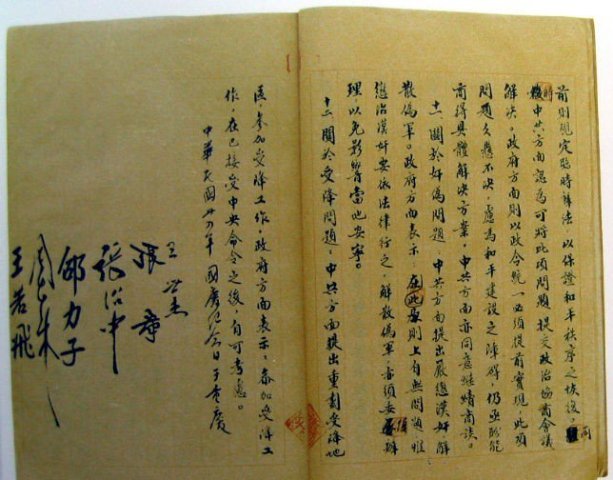 前則規定臨時辦法，以保證和平秩序之恢復，同
時中共方面認為可將此項問題提交政治協商會議
解決。政府方面則以政令統一必須提前實現，此項
問題久懸不決，慮為和平建設之障碍，仍亟盼能
商得具體解決方案。中共方面亦同意繼續商談。
十一、關於奸偽問題，中共方面提出嚴懲漢奸解
散偽軍。政府方面表示：在此原則上自無問題，惟
懲治漢奸要依法律行之，解散偽軍，亦須妥慎辦
理以免影響當地安寧。
十二、關於受降問題，中共方面提出重劃受降地
區，參加受降工作，政府方面表示：參加受降工
作，在已接受中央命令之後，自可考慮。
中華民國卅四年國慶紀念日于重慶
王世杰
張羣
張治中
邵力子
周恩來
王若飛